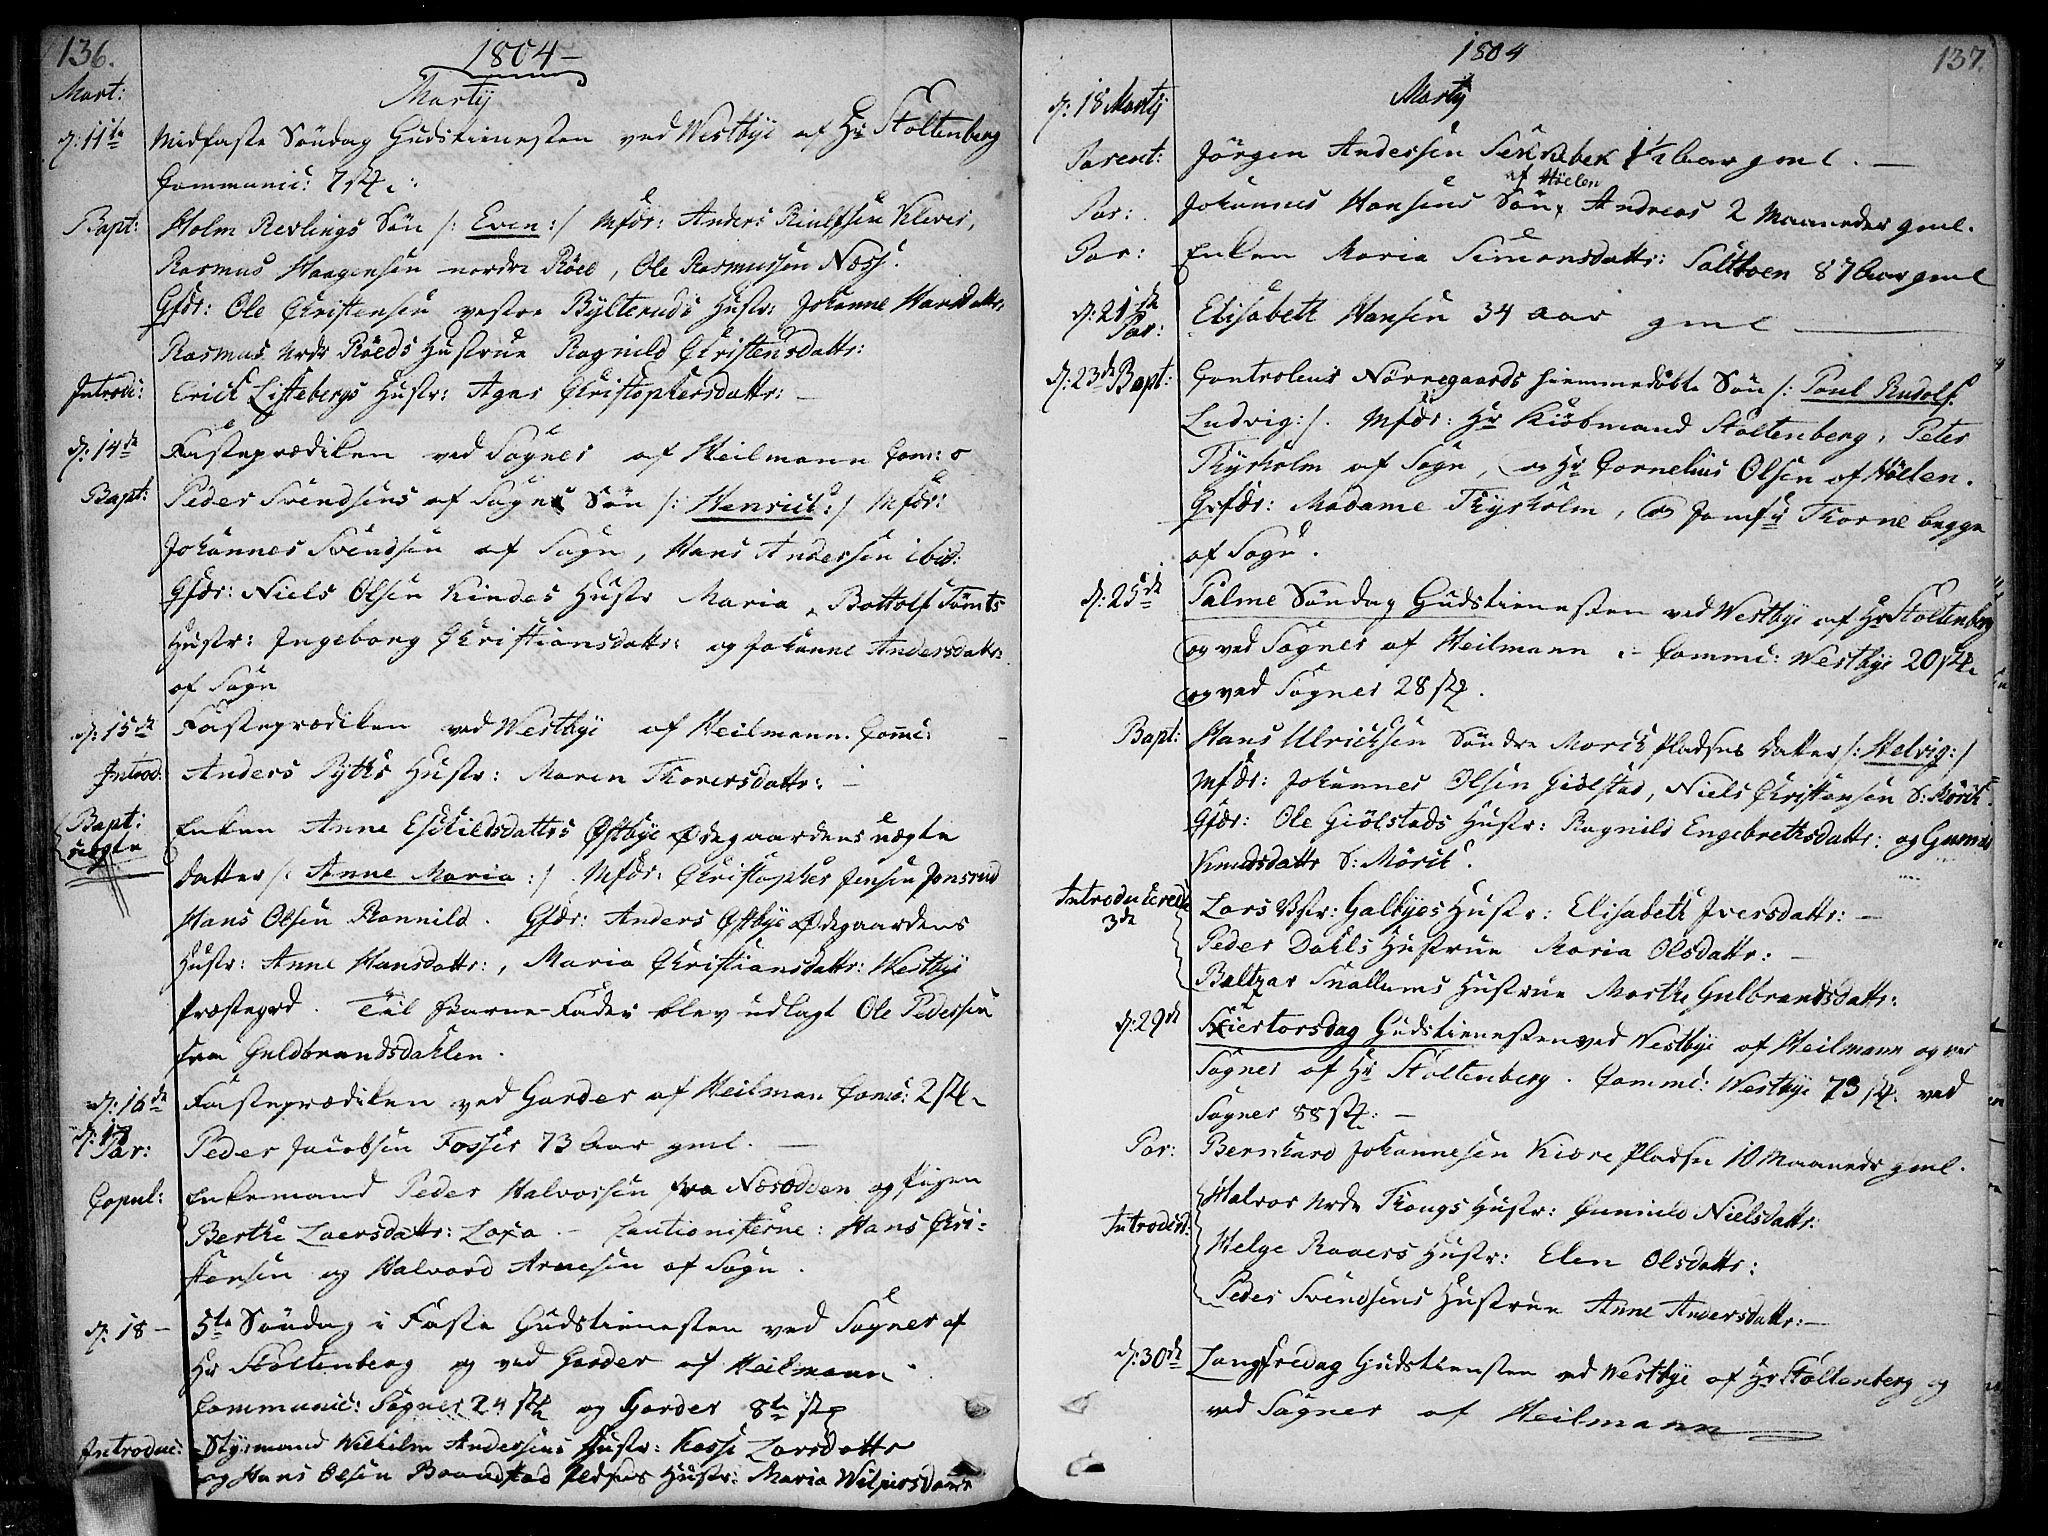 136.
1804 –
Mart:
Martij
d: 11te Midfaste Søndag Gudstienesten ved Westbye af Hr Stoltenberg
Communic: 7 stk:
Bapt: Holm Revlings Søn /: Even :/ Mfdr: Anders
Rasmus Haagensen nordre Röed, Ole Rasmussen Næss.
Gfdr: Ole Christensen vestre Bylteruds Hustr: Johanne Hansdattr:
Rasmus Nrdr Röeds Hustrue Ragnild Christensdattr:
Introd: Erich Listebergs Hustr: Agnes Christophersdattr: –
d: 14de Fasteprædiken ved Sogner af Heilmann Com: 0
Bapt: Peder Svendsens af Sogn Søn /: Henrich :/ Mfdr:
Johannes Svendsen af Sogn, Hans Andersen ibid:
Gfdr: Niels Olsen Kindes Hustr Maria, Bottolf Tomts
Hustr: Ingeborg Christiansdattr: og Johanne Andersdattr:
af Sogn
d: 15de Fasteprædiken ved Westbye af Heilmann. Comc: –
Introd: Anders Hustr: Maren Thoresdattr: –
Bapt: Enken Anne Eschildsdatters Østbye Ødegaardens uægte
uægte Datter /: Anne Maria :/. Mfdr: Christopher Jensen Jonsrud
Hans Olsen Ronnild. Gfdr: Anders Østbye Ødegaardens
Hustr: Anne Hansdattr:, Maria Christiansdattr: Westbye
Præstegrd. Til Barne-Fader blev udlagt Ole Pedersen
fra Guldbrandsdahlen.
d: 16de Fasteprædiken ved Garder af Heilman Comc: 2 stk.
d: 17
Par: Peder Jacobsen Fosser 73 Aar gml. –
Copul: Enkemand Peder Halvorsen fra Næsodden og Pigen
Berthe Laersdattr: Laxa. – Cautionisterne: Hans Chri-
stensen og Halvord Arnesen af Sogn.
d: 18 – 5te Søndag i Faste Gudstienesten ved Sogner af
Hr Stoltenberg og ved Garder af Heilmann
Communic: Sogner 24 stk og Garder 8te stk
Introduc: Styrmand Wilhelm Andersens Hustr: Larsdattr
og Hans Olsen Hustr: Maria
1804
137.
Martij
d: 18 Martij
Parent: Jörgen Andersen 1½ Aar gml. –
af Höelen
Par: Johannes Hansens Søn, Andreas 2 Maaneder gml.
Par: Enken Maria Simonsdattr: 87 Aar gml
d: 21de
Par: Elisabeth Hansen 34 aar gml –
d: 23de Bapt: Controleur Nörregaards hiemmedöbte Søn /: Paul Rudolf
Ludvig :/. Mfdr: Hr Kiöbmand Stoltenberg, Peter
Thyrholm af Sogn, og Hr Cornelius Olsen af Höelen.
Gfdr: Madame Thyrholm, og Jomfr Thorne begge
af Sogn.
d: 25de Palme Søndag Gudstienesten ved Westbye af Hr Stoltenberg
og ved Sogner af Heilmann :– Commc: Westbye 20 stk
og ved Sogner 28 stk.
Bapt: Hans Ulrichsen Søndre Morch Pladses Datter /: Helvig :/
Mfdr: Johannes Olsen Giölstad, Niels Christensen S: Mörch.
Gfdr: Ole Giölstads Hustr: Ragnild Engebrethsdattr: og
Knudsdattr S: Mörch.
Introducerede Lars Vstr: Galbyes Hustr: Elisabeth Iversdattr: –
3de Peder Dahls Hustrue Maria Olsdattr: –
Baltzar Snallums Hustrue Marthe Gulbrandsdattr:
d: 29de Skiertorsdag Gudstienesten ved Westbye af Heilmann og ved
Sogner af Hr Stoltenberg. Commc: Westbye 73 stk. ved
Sogner 88 stk: –
Par: Bernhard Johannesen Pladsen 10 Maaneder gml.
Halvor Nrdr Hustr: Gunnild Nielsdattr:
Introdu: Helge Hustr: Elen Olsdattr:
Peder Svendsens Hustrue Anne Andersdattr: –
d: 30de Langfredag Gudstiensten ved Westbye af Hr Stoltenberg og
ved Sogner af Heilmann